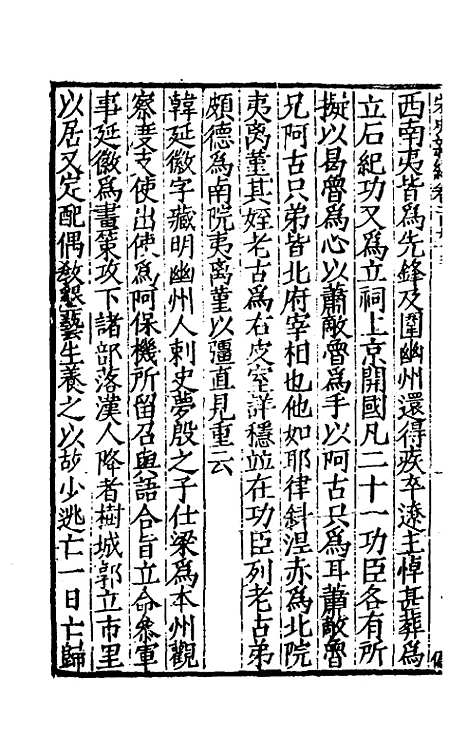 宋史新編卷
西南夷皆為先鋒及圍幽州還得疾卒遼主悼甚葬為
立石紀功又為立祠上京開國凡二十一功臣各有所
擬以曷魯為心以蕭敵魯為手以阿古只為耳蕭敵魯
兄阿古只弟皆北府宰相也他如耶律斜涅赤為北院
夷离堇其姪老古為右皮室詳穩竝在功臣列老古弟
頗德為南院夷离堇以彊直見重云
韓延徽字藏明幽州人刺史夢殷之子仕梁為本州觀
察度支使出使為阿保機所留召與語合旨立命叅軍
事延徽為畫策攻下諸部落漢人降者樹城郭立市里
以居又定配偶教墾藝生養之以故少逃亡一日亡歸